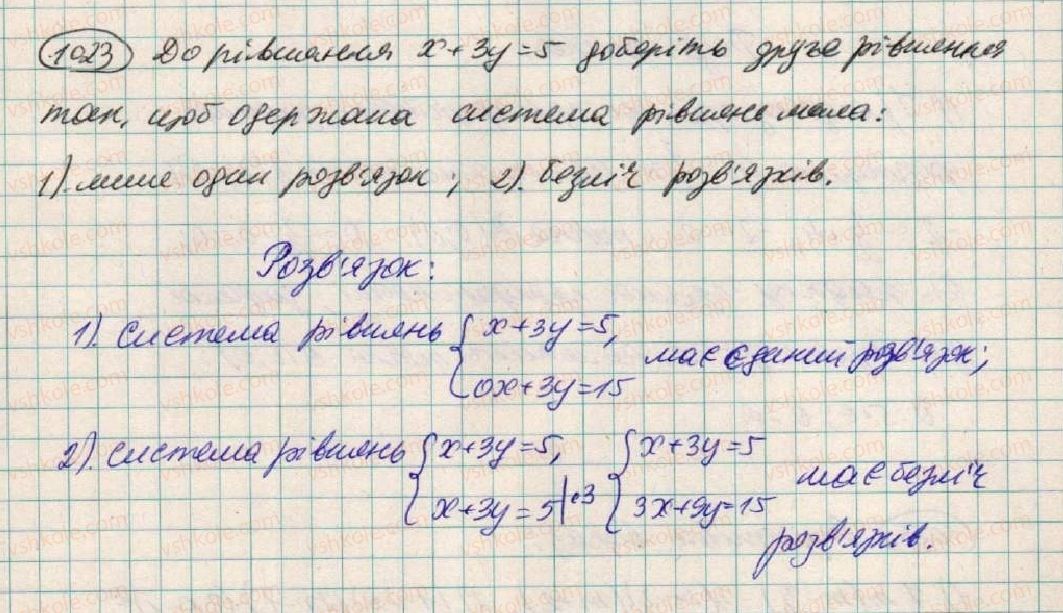 1023 До рівняння x+3y=5 доберіть друге рівняння
так, щоб одержана система рівнянь мала:
1). лише один розв'язок; 2). безліч розв'язків.
Розв'язок:
1). система рівнянь { x+3y=5, 0x+3y=15 має єдиний розв'язок;
2). система рівнянь { x+3y=5, x+3y=5 |·3 { x+3y=5 3x+9y=15 має безліч
розв'язків.